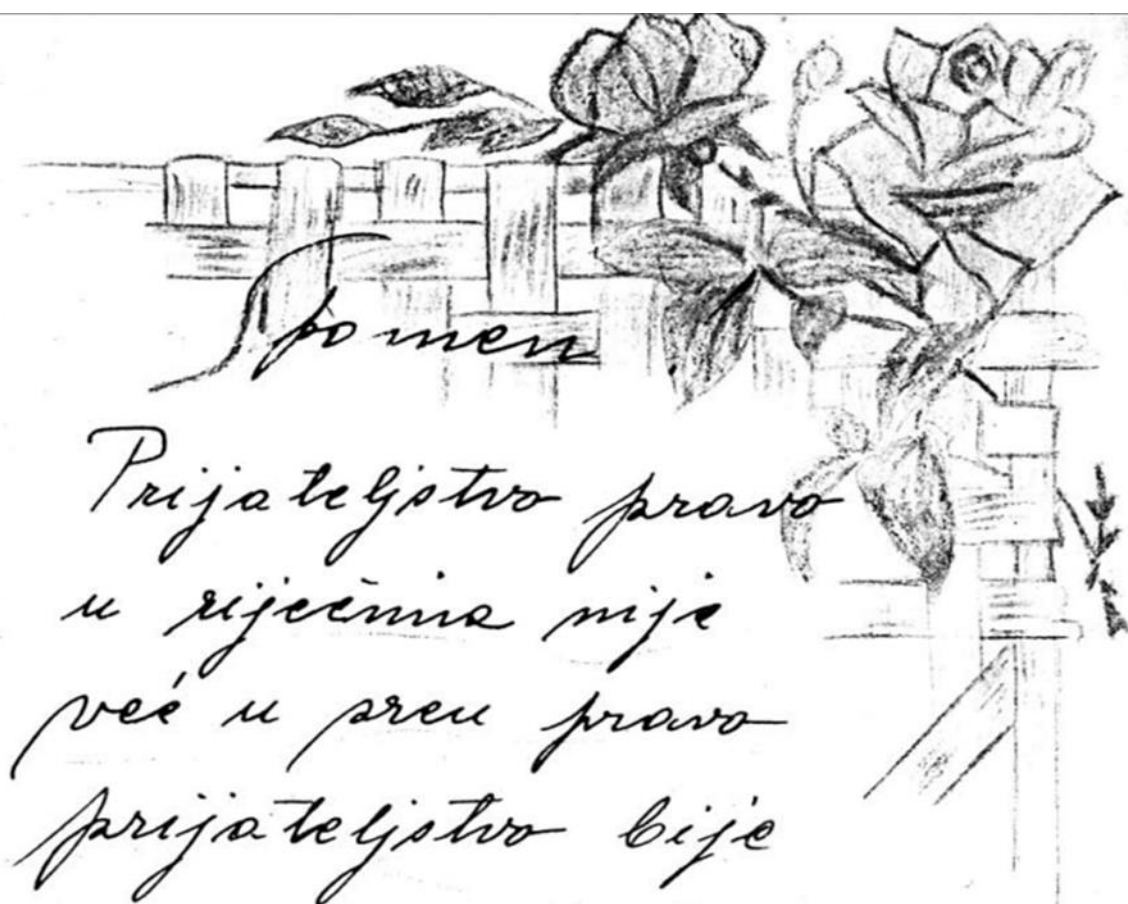 Spomen
Prijateljstvo pravo
u riječima nije
već u srcu pravo
prijateljstvo bije